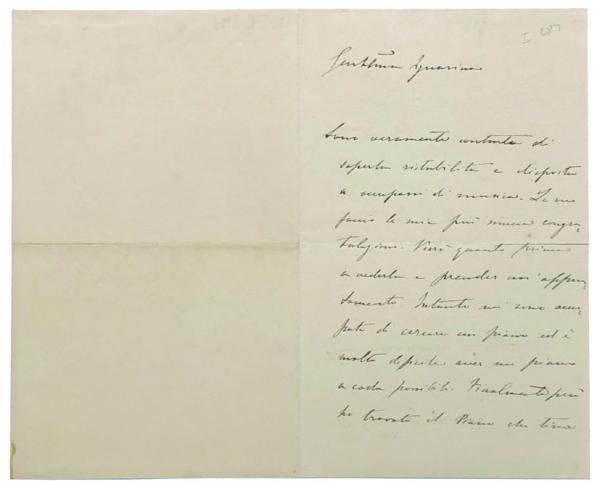 Gentilma Signorina
Sono veramente contenta di
saperla ristabilita e disposta
a occuparsi di musica. Le ne
faccio le mie più vive congra-
tulazioni. Verrò quanto prima
a vederla e prender un' appun-
tamento. Intanto mi sono occu-
pata di cercare un piano ed è
molto difficile aver un piano
a coda possibile. Finalmente però
ho trovato il Piano che